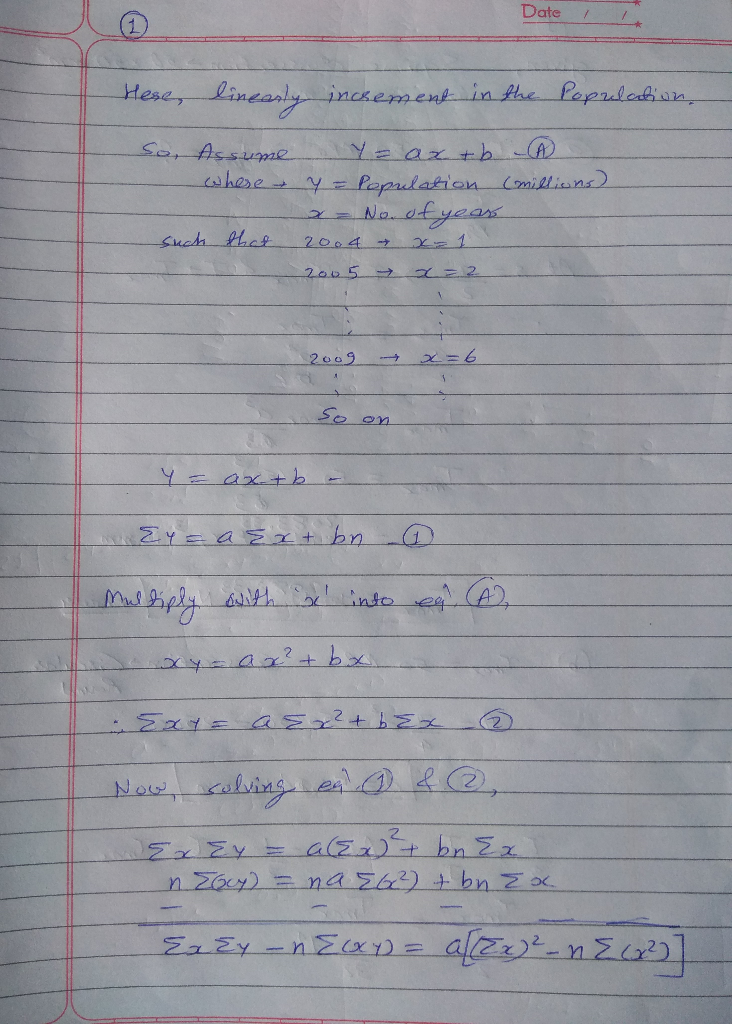 Date / /
①
Here, linearly increment in the Population.
So, Assume Y = ax + b - Ⓐ
where → Y = Population (millions)
x = No. of years
such that 2004 → x = 1
2005 → x = 2
2009 → x = 6
So on
Y = ax + b -
ΣY = a Σx + bn - ①
Multiply with 'x' into eqⁿ Ⓐ,
xy = ax² + bx
∴ Σxy = a Σx² + b Σx - ②
Now, solving eqⁿ ① & ②,
Σx Σy = a(Σx)² + bn Σx
n Σ(xy) = na Σ(x²) + bn Σx
− − −
Σx Σy − n Σ(xy) = a[(Σx)² − n Σ(x²)]